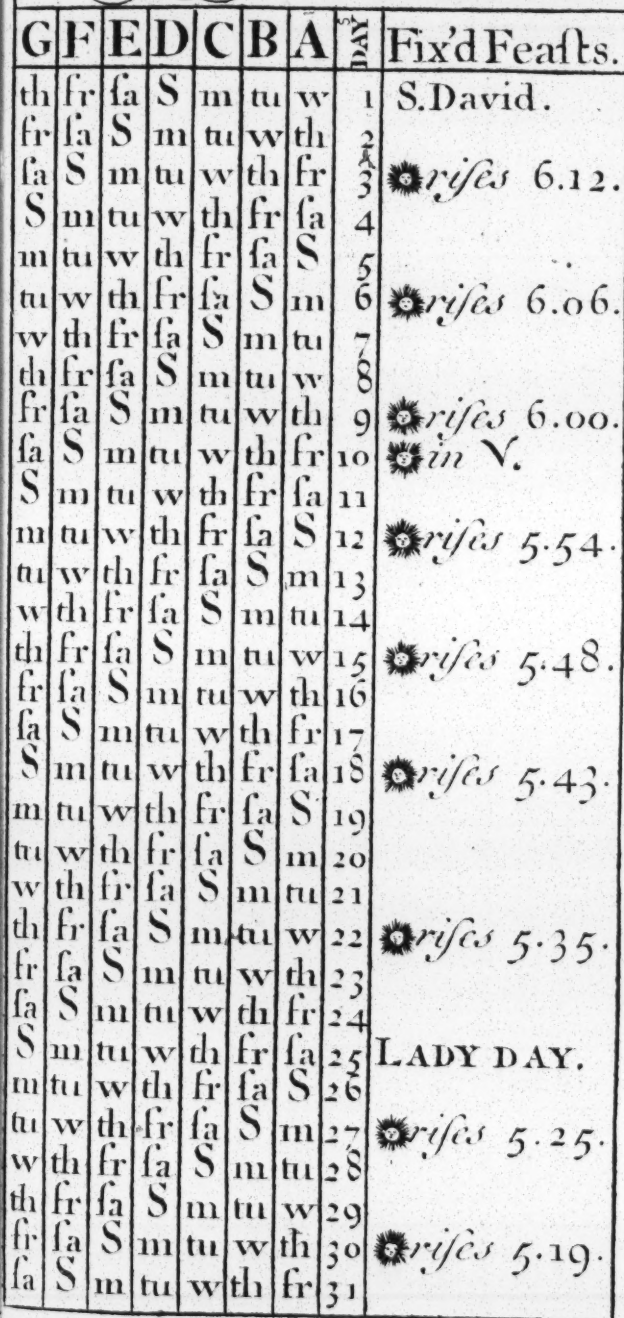 G F E D C B A DAYS Fix'd Feaſts.
th fr ſa S m tu w 1 S. David.
fr ſa S m tu w th 2
ſa S m tu w th fr 3 riſes 6.12.
S m tu w th fr ſa 4
m tu w th fr ſa S 5
tu w th fr ſa S m 6 riſes 6.06.
w th fr ſa S m tu 7
th fr ſa S m tu w 8
fr ſa S m tu w th 9 riſes 6.00.
ſa S m tu w th fr 10 in ♈.
S m tu w th fr ſa 11
m tu w th fr ſa S 12 riſes 5.54.
tu w th fr ſa S m 13
w th fr ſa S m tu 14
th fr ſa S m tu w 15 riſes 5.48.
fr ſa S m tu w th 16
ſa S m tu w th fr 17
S m tu w th fr ſa 18 riſes 5.43.
m tu w th fr ſa S 19
tu w th fr ſa S m 20
w th fr ſa S m tu 21
th fr ſa S m tu w 22 riſes 5.35.
fr ſa S m tu w th 23
ſa S m tu w th fr 24
S m tu w th fr ſa 25 LADY DAY.
m tu w th fr ſa S 26
tu w th fr ſa S m 27 riſes 5.25.
w th fr ſa S m tu 28
th fr ſa S m tu w 29
fr ſa S m tu w th 30 riſes 5.19.
ſa S m tu w th fr 31